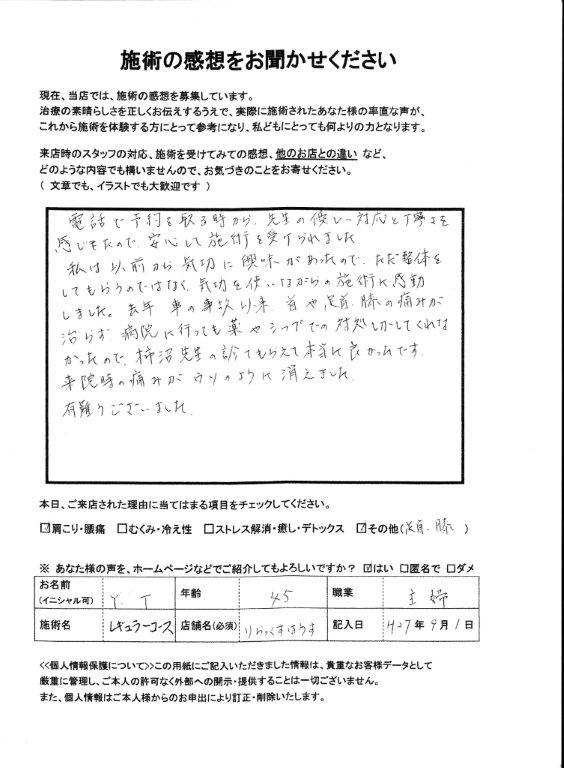 施術の感想をお聞かせください
現在、当店では、施術の感想を募集しています。
治療の素晴らしさを正しくお伝えするうえで、実際に施術されたあなた様の率直な声が、
これから施術を体験する方にとって参考になり、私どもにとっても何よりの力となります。
来店時のスタッフの対応、施術を受けてみての感想、他のお店との違い など、
どのような内容でも構いませんので、お気づきのことをお寄せください。
( 文章でも、イラストでも大歓迎です )
電話で予約を取る時から、先生の優しい対応と丁寧さを
感じれたので、安心して施術を受けられました。
私は以前から気功に興味があったので、ただ整体を
してもらうのではなく、気功を使いながらの施術に感動
しました。去年 車の事故以来、首や足首、膝の痛みが
治らず 病院に行っても薬やシップでの対処しかしてくれな
かったので、柿沼先生の診てもらえて本当に良かったです。
来院時の痛みがウソのように消えました。
有難うございました。
本日、ご来店された理由に当てはまる項目をチェックしてください。
☑肩こり・腰痛 □むくみ・冷え性 □ストレス解消・癒し・デトックス ☑その他(足首、膝 )
※ あなた様の声を、ホームページなどでご紹介してもよろしいですか? ☑はい □匿名で □ダメ
お名前 (イニシャル可) Y. T 年齢 45 職業 主婦
施術名 レギュラーコース 店舗名(必須) りらっくすはうす 記入日 H27年 9月 1日
<<個人情報保護について>>この用紙にご記入いただきました情報は、貴重なお客様データとして
厳重に管理し、ご本人の許可なく外部への開示・提供することは一切ございません。
また、個人情報はご本人様からのお申出により訂正・削除いたします。